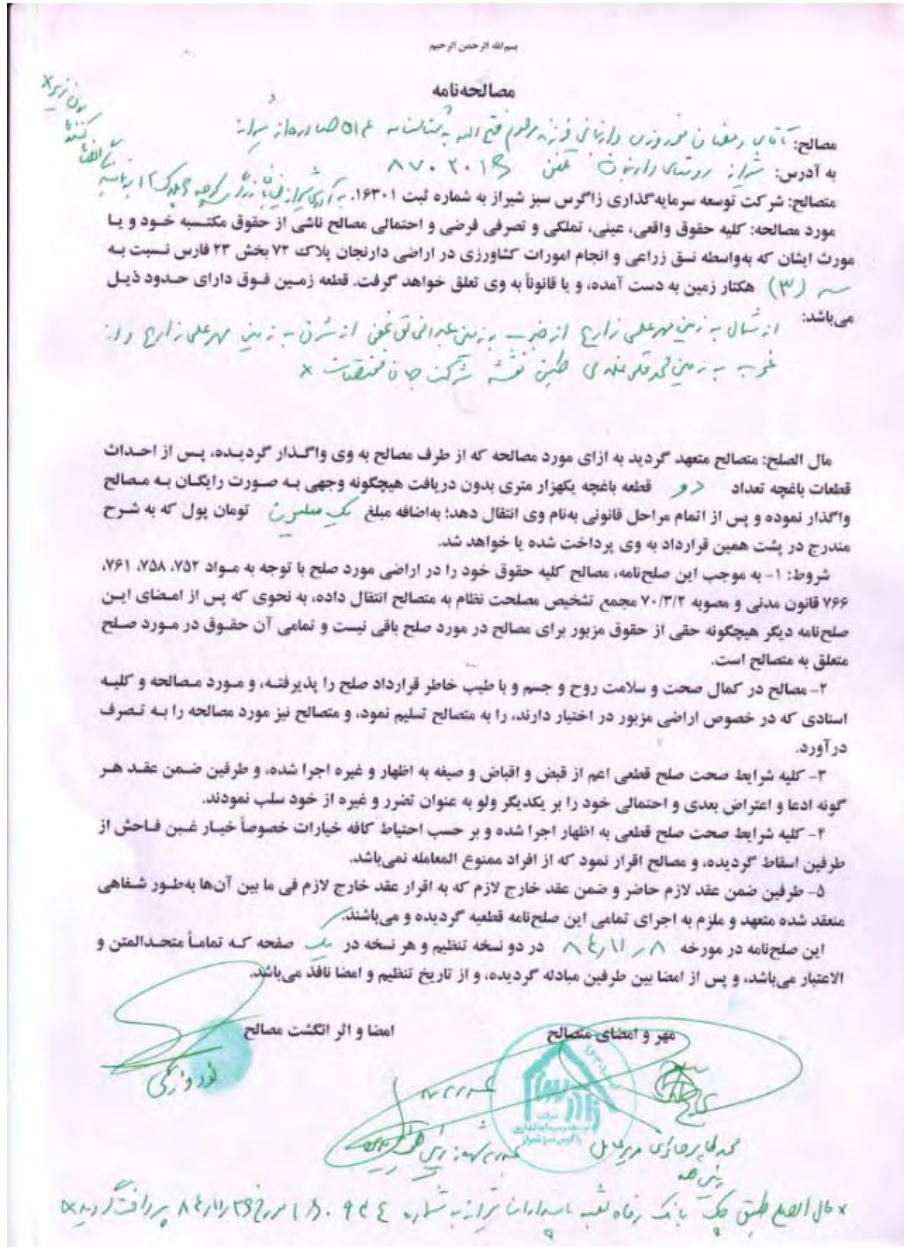 بسم الله الرحمن الرحیم
مصالحه‌نامه
مصالح: آقای رمضان نوروزی دارنجانی فرزند مرحوم فتح اله به شناسنامه صادره از شیراز
به آدرس: شیراز روستای دارنجان تلفن
متصالح: شرکت توسعه سرمایه‌گذاری زاگرس سبز شیراز به شماره ثبت ۱۶۳۰۱. به آدرس شیراز
مورد مصالحه: کلیه حقوق واقعی، عینی، تملکی و تصرفی فرضی و احتمالی مصالح ناشی از حقوق مکتسبه خـود و یـا
مورث ایشان که به‌واسطه نسق زراعی و انجام امورات کشاورزی در اراضی دارنجان پلاک ۷۲ بخش ۲۳ فارس نسبت بـه
سه (۳) هکتار زمین به دست آمده، و یا قانوناً به وی تعلق خواهد گرفت. قطعه زمـین فـوق دارای حـدود ذیـل
می‌باشد: از شمال به زمین مهرعلی زارع از جنوب به زمین از شرق به زمین مهرعلی زارع و از
غرب به زمین طبق نقشه شرکت
مال الصلح: متصالح متعهد گردید به ازای مورد مصالحه که از طرف مصالح به وی واگـذار گردیـده، پـس از احـداث
قطعات باغچه تعداد دو قطعه باغچه یکهزار متری بدون دریافت هیچگونه وجهی بـه صـورت رایگـان بـه مـصالح
واگذار نموده و پس از اتمام مراحل قانونی به‌نام وی انتقال دهد؛ به‌اضافه مبلغ یک میلیون تومان پول که به شـرح
مندرج در پشت همین قرارداد به وی پرداخت شده یا خواهد شد.
شروط: ۱- به موجب این صلح‌نامه، مصالح کلیه حقوق خود را در اراضی مورد صلح با توجه به مـواد ۷۵۲، ۷۵۸، ۷۶۱،
۷۶۶ قانون مدنی و مصوبه ۷۰/۳/۲ مجمع تشخیص مصلحت نظام به متصالح انتقال داده، به نحوی که پس از امـضای ایـن
صلح‌نامه دیگر هیچگونه حقی از حقوق مزبور برای مصالح در مورد صلح باقی نیست و تمامی آن حقـوق در مـورد صـلح
متعلق به متصالح است.
۲- مصالح در کمال صحت و سلامت روح و جسم و با طیب خاطر قرارداد صلح را پذیرفتـه، و مـورد مـصالحه و کلیـه
اسنادی که در خصوص اراضی مزبور در اختیار دارند، را به متصالح تسلیم نمود، و متصالح نیز مورد مصالحه را بـه تـصرف
درآورد.
۳- کلیه شرایط صحت صلح قطعی اعم از قبض و اقباض و صیغه به اظهار و غیره اجرا شده، و طرفین ضمن عقـد هـر
گونه ادعا و اعتراض بعدی و احتمالی خود را بر یکدیگر ولو به عنوان تضرر و غیره از خود سلب نمودند.
۴- کلیه شرایط صحت صلح قطعی به اظهار اجرا شده و بر حسب احتیاط کافه خیارات خصوصاً خیـار غـبن فـاحش از
طرفین اسقاط گردیده، و مصالح اقرار نمود که از افراد ممنوع المعامله نمی‌باشد.
۵- طرفین ضمن عقد لازم حاضر و ضمن عقد خارج لازم که به اقرار عقد خارج لازم فی ما بین آن‌ها به‌طـور شـفاهی
منعقد شده متعهد و ملزم به اجرای تمامی این صلح‌نامه قطعیه گردیده و می‌باشند.
این صلح‌نامه در مورخه در دو نسخه تنظیم و هر نسخه در یک صفحه کـه تمامـاً متحـدالمتن و
الاعتبار می‌باشد، و پس از امضا بین طرفین مبادله گردیده، و از تاریخ تنظیم و امضا نافذ می‌باشد.
مهر و امضای متصالح
امضا و اثر انگشت مصالح
مدیرعامل
مال الصلح طبق چک بانک رفاه شعبه شیراز به شماره مورخ پرداخت گردید